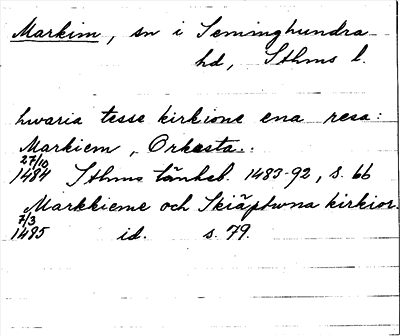 Markim, sn i Seminghundra
hd, Sthms l.
hwaria tesse kirkione ena resa:
Markiem, Orkesta.
27/10
1484 Sthms tänkeb. 1483-92, s. 66
Markkieme och Skiäptwna kirkior.
7/3
1485 id. s. 79.